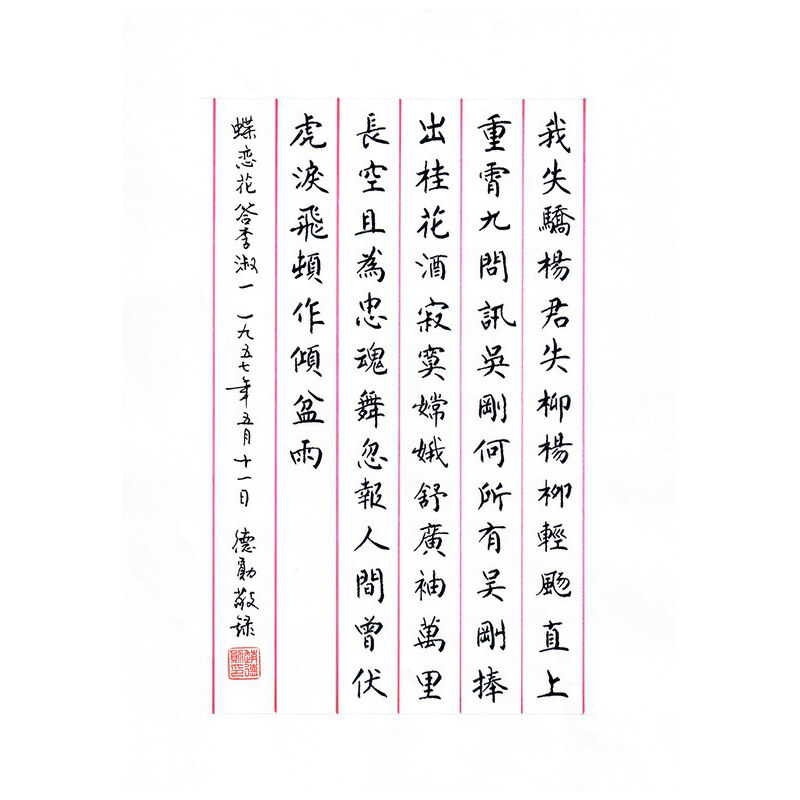 我失驕楊君失柳楊柳輕颺直上
重霄九問訊吳剛何所有吳剛捧
出桂花酒寂寞嫦娥舒廣袖萬里
長空且為忠魂舞忽報人間曾伏
虎淚飛頓作傾盆雨
蝶恋花 答李淑一 一九五七年五月十一日 德勛敬録